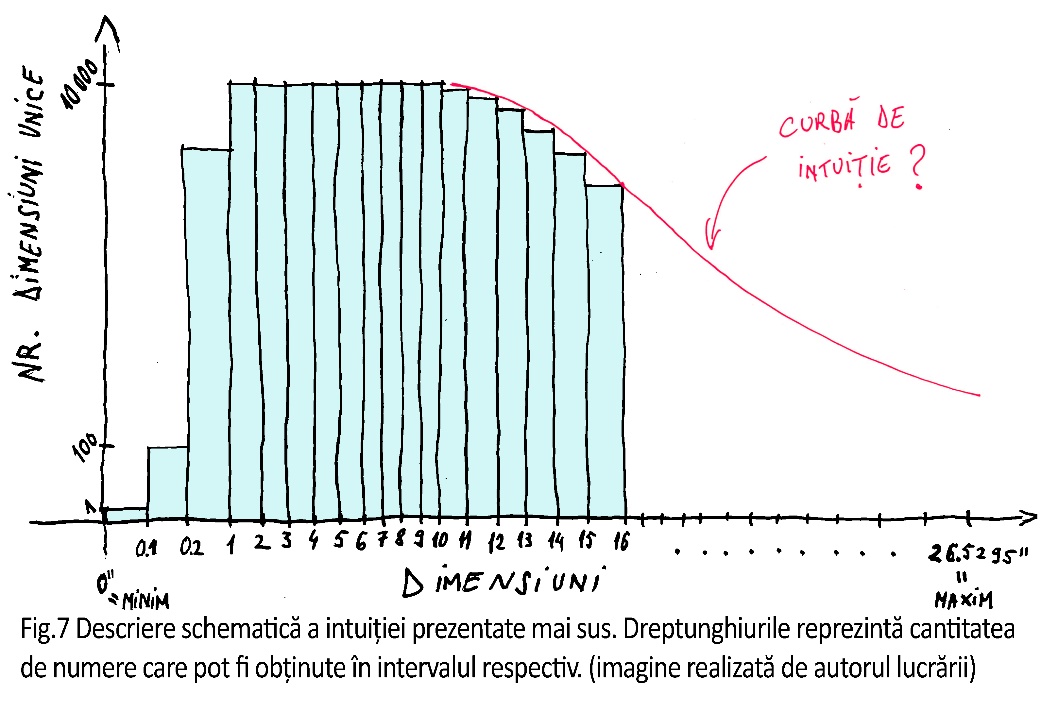 NR. DIMENSIUNI UNICE
10000
100
1
CURBĂ DE
INTUIȚIE ?
0.1 0.2 1 2 3 4 5 6 7 8 9 10 11 12 13 14 15 16 . . . . . . . . . 26.5295"
0"
= MINIM
DIMENSIUNI
"
MAXIM
Fig.7 Descriere schematică a intuiției prezentate mai sus. Dreptunghiurile reprezintă cantitatea
de numere care pot fi obținute în intervalul respectiv. (imagine realizată de autorul lucrării)